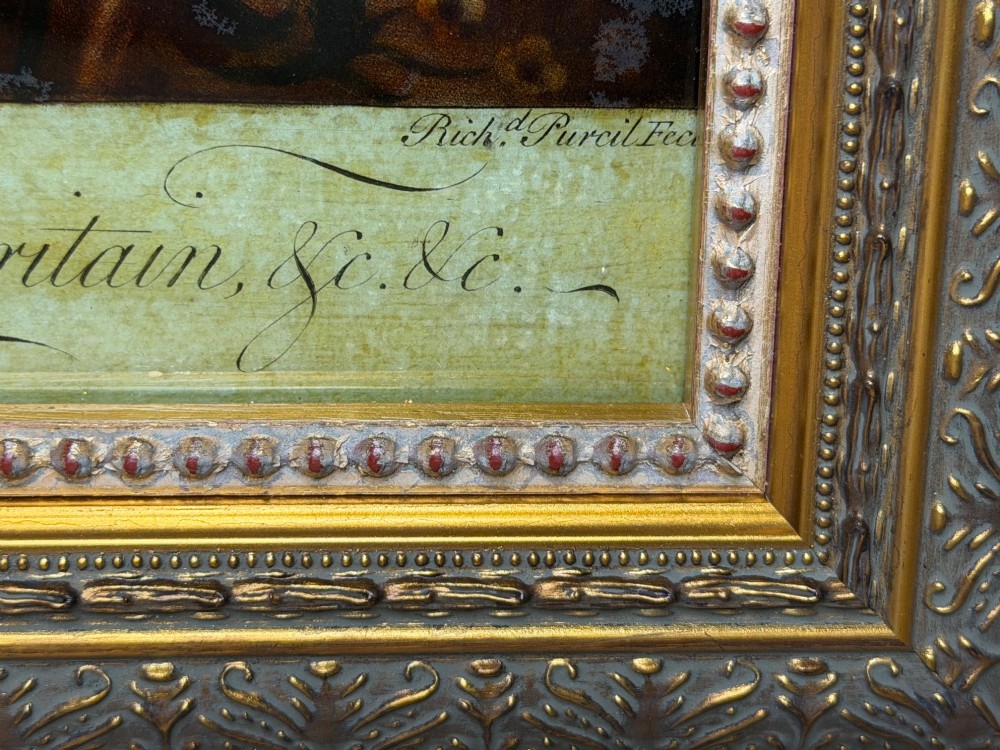 Rich.d Purcil Fec
ritain, &c. &c.